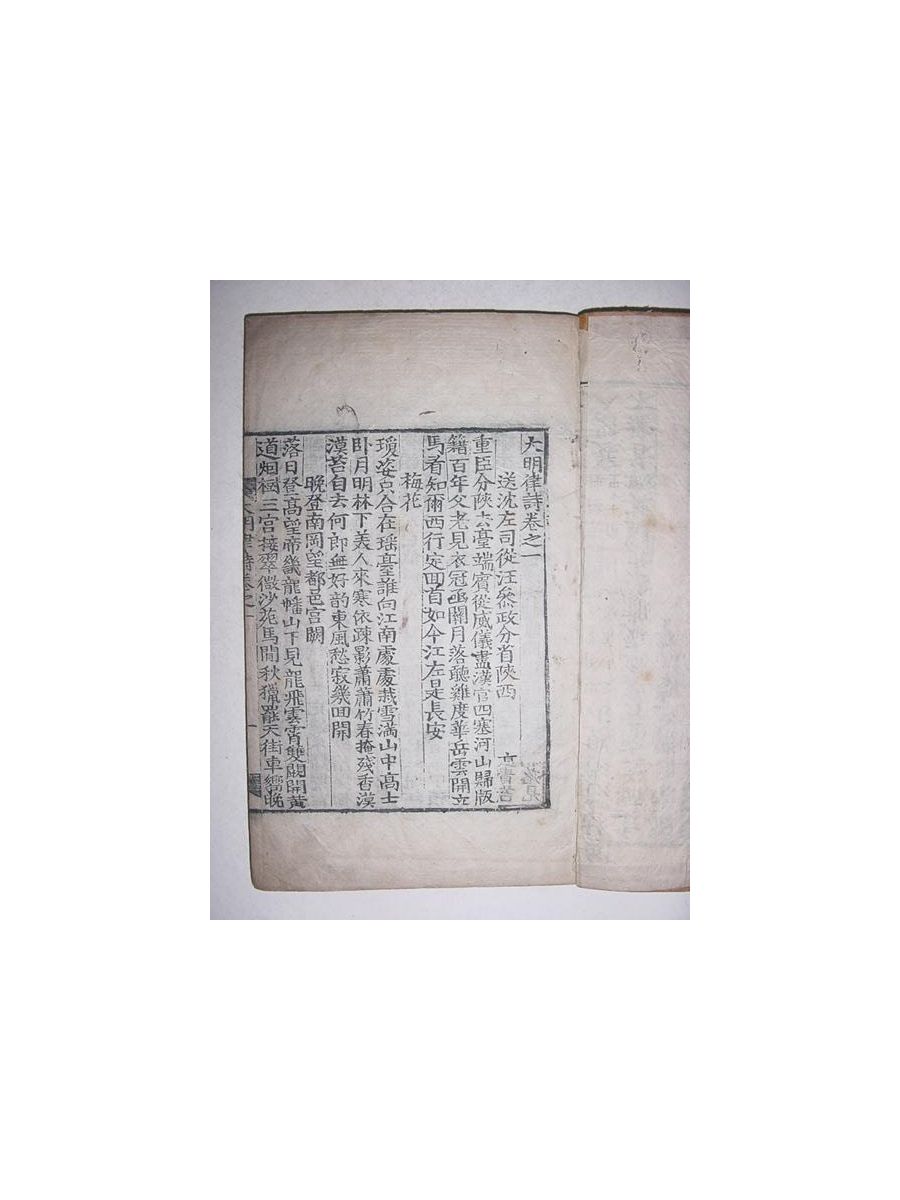 大明律詩卷之一
送沈左司從汪叅政分省陝西
重臣分陝去臺端賓從威儀盡漢官四塞河山歸版
籍百年父老見衣冠函關月落聽雞度華岳雲開立
馬看知爾西行定回首如今江左是長安
梅花
瓊姿只合在瑶臺誰向江南處處栽雪滿山中高士
卧月明林下美人來寒依疎影蕭蕭竹春掩殘香漠
漠苔自去何郎無好韵東風愁寂幾回開
晚登南岡望都邑宮闕
落日登高望帝畿龍蟠山下見龍飛雲霄雙闕開黃
道烟樹三宮接翠微沙苑馬閒秋獵罷天街車